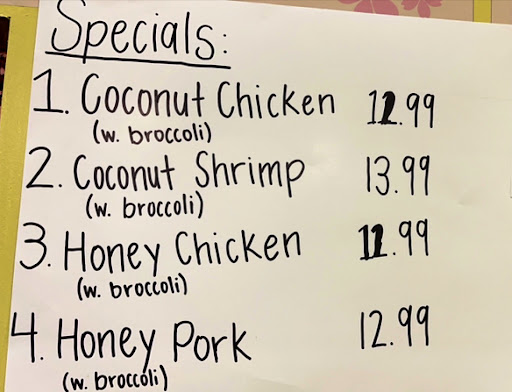 Specials:
1. Coconut Chicken 12.99
(w. broccoli)
2. Coconut Shrimp 13.99
(w. broccoli)
3. Honey Chicken 11.99
(w. broccoli)
4. Honey Pork 12.99
(w. broccoli)